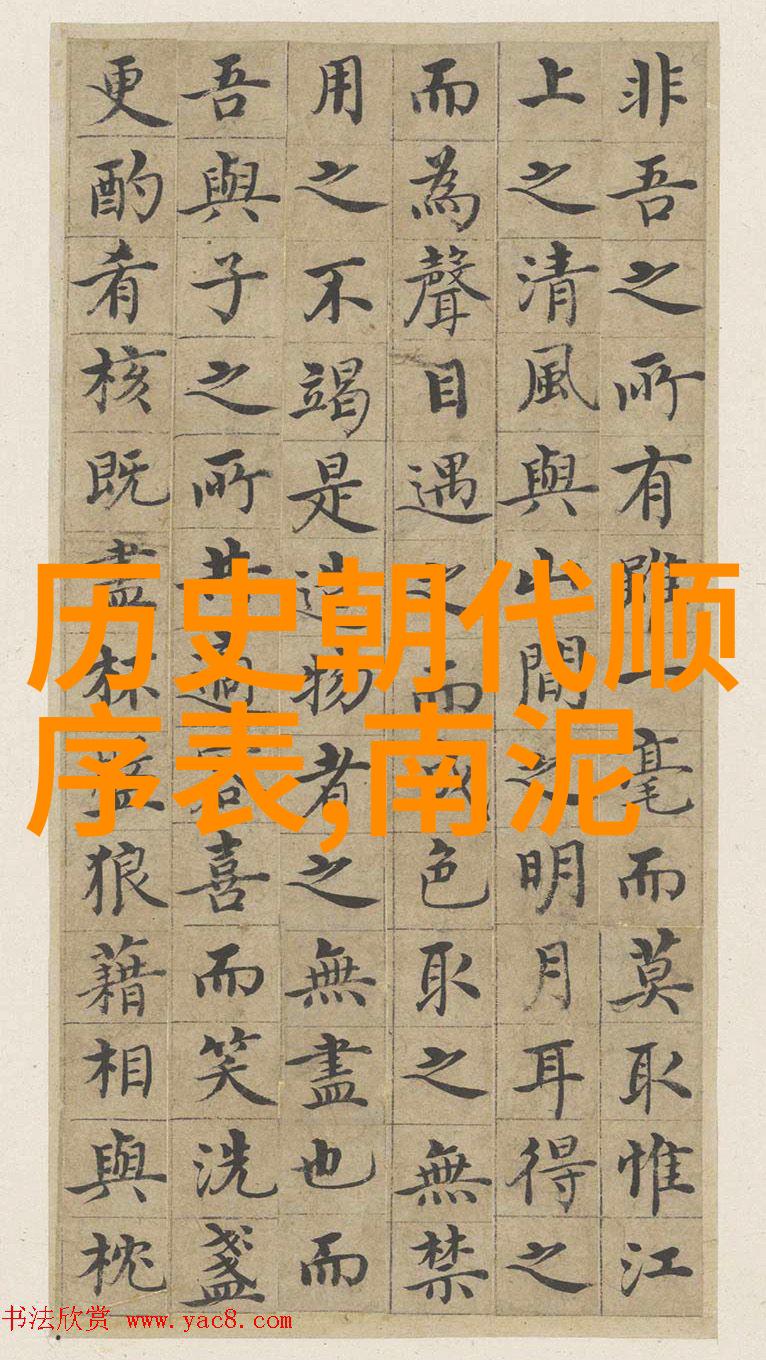 非吾之所有雖一毫而莫取惟江
上之清風與山間之明月耳得之
而為聲目遇之而成色取之無禁
用之不竭是造物者之無盡也而
吾與子之所共適客喜而笑洗盞
更酌肴核既盡杯盤狼藉相與枕
历史朝代顺
序表,南泥
书法欣赏 www.yac8.com